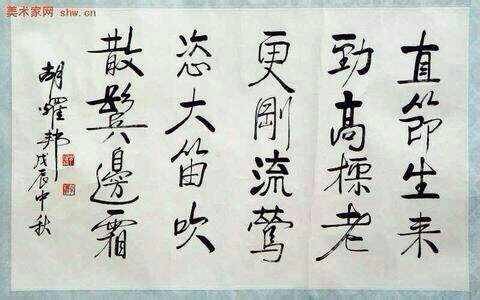 美术家网 shw.cn
直節生来
勁高標老
更剛流鶯
恣大笛吹
散鬓邊霜
胡耀邦戊辰中秋